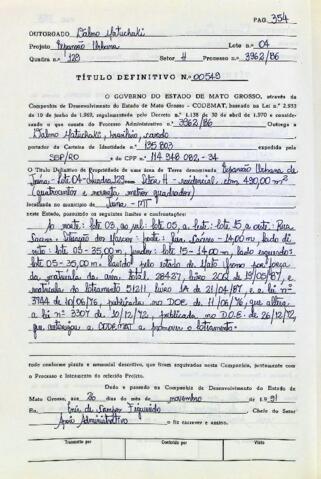 PAG. 354
OUTORGADO Dalmo Matuchaki
Projeto Expansão Urbana Lote n.º 04
Quadra n.º 129 Setor H Processo n.º 3962/86
TÍTULO DEFINITIVO N.º 00549
O GOVERNO DO ESTADO DE MATO GROSSO, através da
Companhia de Desenvolvimento do Estado de Mato Grosso - CODEMAT, baseado na Lei n.º 2.953
de 10 de junho de 1969, regulamentada pelo Decreto n.º 1.138 de 30 de abril de 1970 e considerando
o que consta do Processo Administrativo n.º 3962/86 Outorga a
Dalmo Matuchaki, brasileiro, casado
portador da Carteira de Identidade n.º 135803 expedida pela
SSP/RO e do CPF n.º 114 948 082 - 34
O Título Definitivo de Propriedade de uma área de Terra denominada Expansão Urbana de
Juína: lote 04 - Quadra 129 - Setor H - residencial, com 490,00 m²
(quatrocentos e noventa metros quadrados)
localizada no município de Juína - MT
neste Estado, possuindo os seguintes limites e confrontações:
ao norte: lote 03, ao sul: lote 05, a leste: lote 15, a oeste: Rua
- 14,00 m, lado di
reito: lote 03 - 35,00 m, fundos: lote 15 - 14,00 m, lado esquerdo:
lote 05 - 35,00 m.
da matrícula da área total: 28.437, livro 2 19/05/87, e
matrícula do loteamento 51211, livro 21/04/87, e a lei nº
3744 de 10/06/76, publicada no DOE de 11/06/76, que altera
a lei nº 3307 de 10/12/72, publicada no D.O.E. de 26/12/72,
que autorizou a CODEMAT a promover o loteamento.
tudo conforme planta e memorial descritivo, que ficam arquivados nesta Companhia, juntamente com
o Processo e Internamento do referido Projeto.
Dado e passado na Companhia de Desenvolvimento do Estado de
Mato Grosso, aos 20 dias do mês de novembro de 1991
Eu, de Campos Figueiredo Chefe do Setor
Apoio Administrativo o fiz escrever e assino.
Transcrito por Conferido por Visto